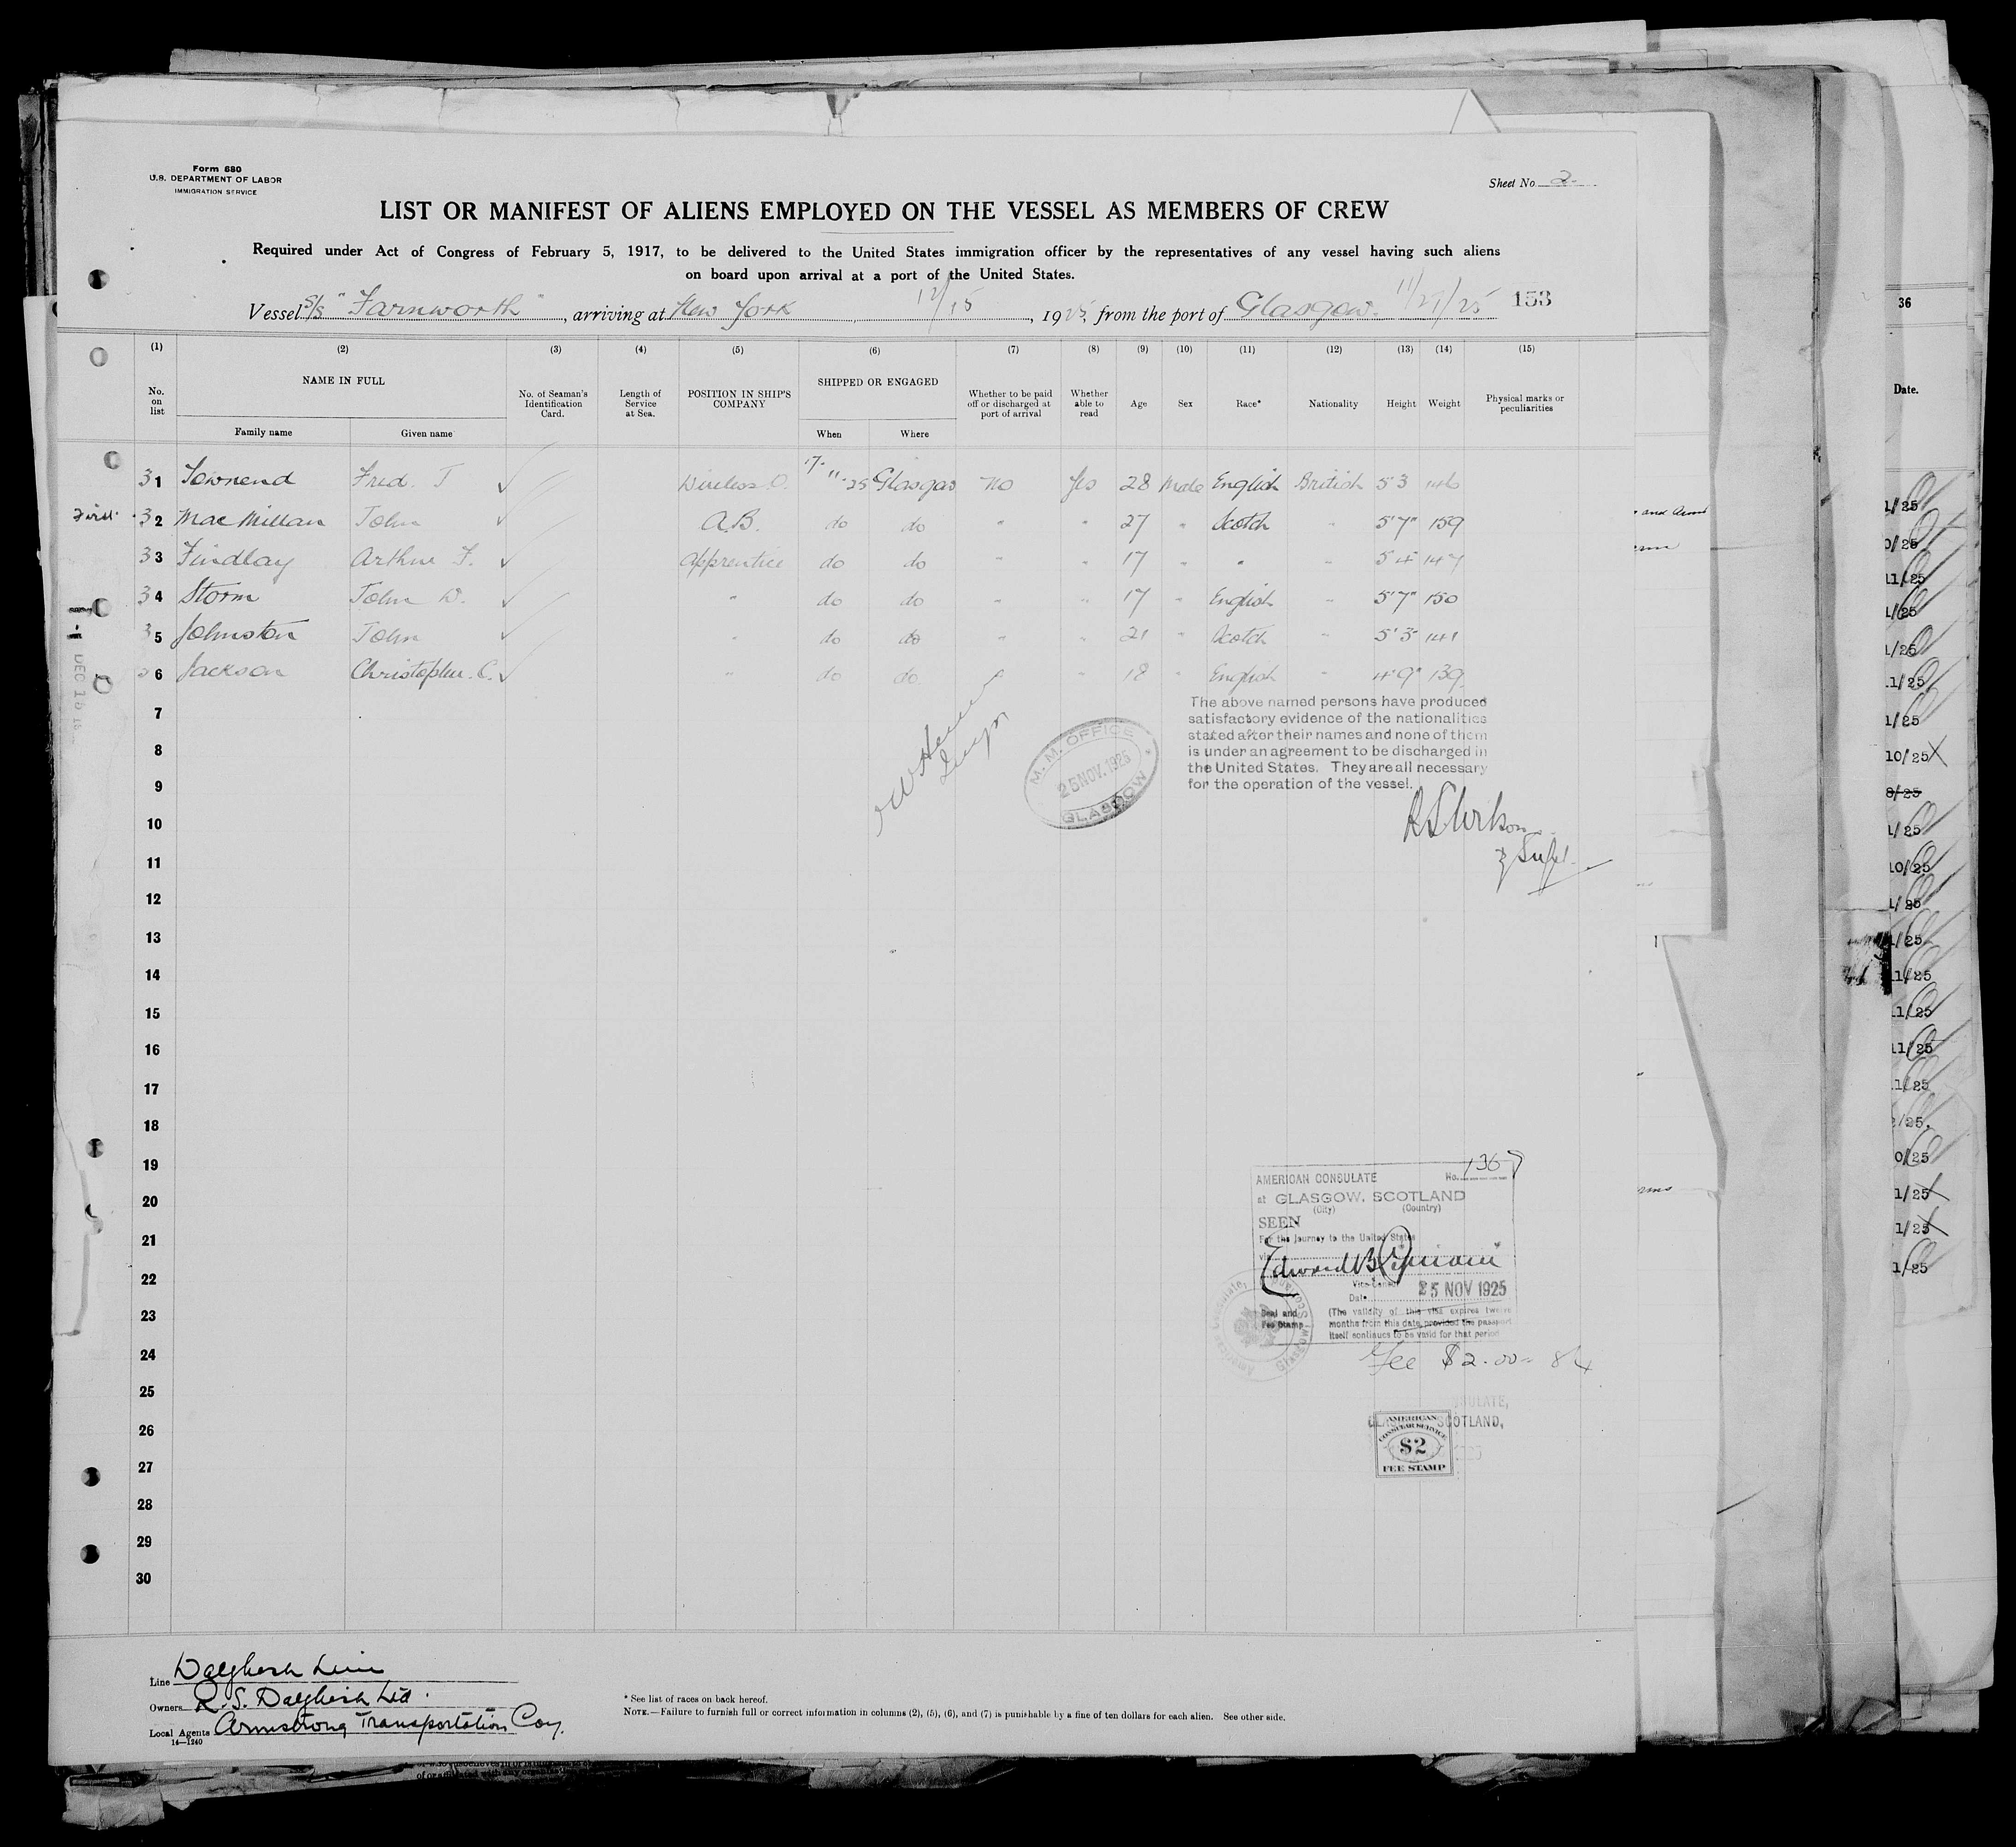 Form 680
U.S. DEPARTMENT OF LABOR
IMMIGRATION SERVICE
Sheet No 2
LIST OR MANIFEST OF ALIENS EMPLOYED ON THE VESSEL AS MEMBERS OF CREW
Required under Act of Congress of February 5, 1917, to be delivered to the United States immigration officer by the representatives of any vessel having such aliens
on board upon arrival at a port of the United States.
Vessel S/S "Farnworth", arriving at New York 12/15, 1925, from the port of Glasgow. 11/27/25 153
(1) (2) (3) (4) (5) (6) (7) (8) (9) (10) (11) (12) (13) (14) (15)
No. on list NAME IN FULL No. of Seaman's Identification Card. Length of Service at Sea. POSITION IN SHIP'S COMPANY SHIPPED OR ENGAGED Whether to be paid off or discharged at port of arrival Whether able to read Age Sex Race* Nationality Height Weight Physical marks or peculiarities
Family name Given name When Where
31 Townend Fred. J ✓ Wireless.O. 17-11-25 Glasgow No Yes 28 Male English British 5 3 146
First 32 MacMillan John ✓ A.B. do do " " 27 " Scotch " 5'7" 159
33 Findlay Arthur F. ✓ Apprentice do do " " 17 " " " 5 4 147
34 Storm John W. ✓ " do do " " 17 " English " 5'7" 150
35 Johnston John ✓ " do do " " 21 " Scotch " 5'3" 141
36 Jackson Christopher. C. ✓ " do do " " 18 " English " 4'9" 139
7
8
9
10
11
12
13
14
15
16
17
18
19
20
21
22
23
24
25
26
27
28
29
30
The above named persons have produced
satisfactory evidence of the nationalities
stated after their names and none of them
is under an agreement to be discharged in
the United States. They are all necessary
for the operation of the vessel.
M. M. OFFICE
25 NOV. 1925
GLASGOW
DEC 15
AMERICAN CONSULATE No. 1367
at GLASGOW, SCOTLAND
(City) (Country)
SEEN
For the journey to the United States
via
Edward B
Vice Consul
Date 25 NOV 1925
Seal and
Fee Stamp
(The validity of this visa expires twelve
months from this date provided the passport
itself continues to be valid for that period
Fee $2.00 = 8/4
SCOTLAND,
AMERICAN
CONSULAR SERVICE
$2
FEE STAMP
Line Dalgliesh Line
Owners R. S. Dalgliesh Ltd.
Local Agents Armstrong Transportation Coy.
14—1240
* See list of races on back hereof.
NOTE.—Failure to furnish full or correct information in columns (2), (5), (6), and (7) is punishable by a fine of ten dollars for each alien. See other side.
36
Date.